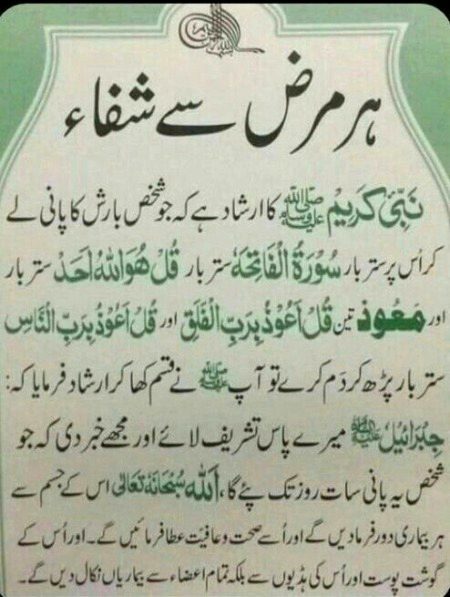 ہر مرض سے شفاء
نَبِیِّ کَرِیْم ﷺ کا ارشاد ہے کہ جو شخص بارش کا پانی لے
کر اُس پر ستر بار سُوْرَۃُ الْفَاتِحَہ ستر بار قُلْ هُوَ اللّٰهُ اَحَدٌ ستر بار
اور مَعُوذ تین قُلْ اَعُوْذُ بِرَبِّ الْفَلَقِ اور قُلْ اَعُوْذُ بِرَبِّ النَّاسِ
ستر بار پڑھ کر دَم کرے تو آپ ﷺ نے قسم کھا کر ارشاد فرمایا کہ:
جِبْرَائِیْل علیہ السلام میرے پاس تشریف لائے اور مجھے خبر دی کہ جو
شخص یہ پانی سات روز تک پئے گا، اَللّٰه سُبْحَانَهٗ تَعَالٰی اس کے جسم سے
ہر بیماری دور فرما دیں گے اور اُسے صحت و عافیت عطا فرمائیں گے۔ اور اُس کے
گوشت پوست اور اُس کی ہڈیوں سے بلکہ تمام اعضاء سے بیماریاں نکال دیں گے۔